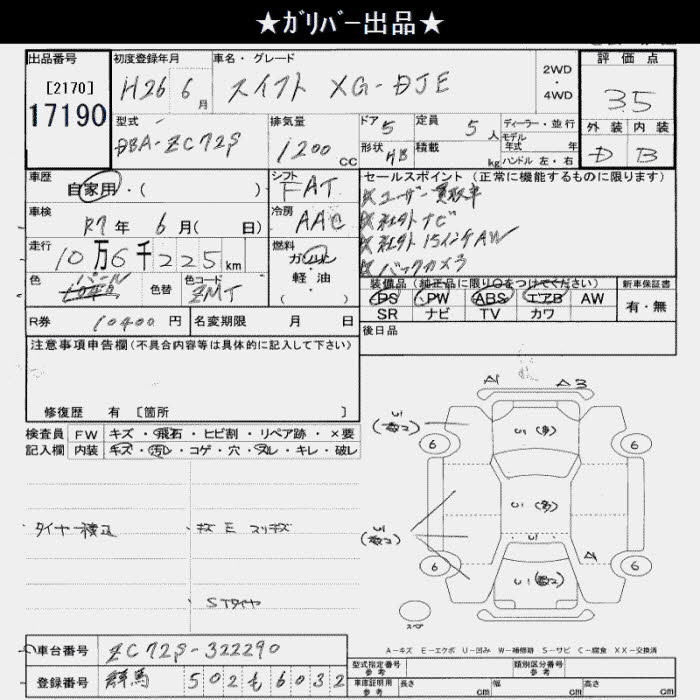 ★ｶﾞﾘﾊﾞｰ出品★
出品番号
[2170]
17190
初度登録年月
H26 6月
車名・グレード
スイフト XG-DJE
2WD
・
4WD
評価点
3.5
外装 内装
D B
型式
DBA-ZC72S
排気量
1200 CC
ドア 5
定員 5人
形状 HB
積載 kg
ディーラー・並行
モデル
年式 年
ハンドル 左・右
車歴
自家用・( )
シフト
FAT
車検
R7年 6月( 日)
冷房
AAC
走行
10万6千225km
燃料
ガソリン
軽・油
( )
色
パール
色替
色コード
ZMT
R券 10400円
名変期限 月 日
セールスポイント (正常に機能するものに限ります)
☆ユーザー買取車
☆社外ナビ
☆社外15インチAW
☆バックカメラ
装備品(純正品に限り○をつけてください)
新車保証書
PS PW ABS エアB AW
SR ナビ TV カワ
有・無
後日品
注意事項申告欄(不具合内容等は具体的に記入して下さい)
修復歴 有 [箇所 ]
検査員
記入欄
FW キズ・飛石・ヒビ割・リペア跡・×要
内装 キズ・汚レ・コゲ・穴・ヌレ・キレ・破レ
タイヤー積込
キズ E スリキズ
STタイヤ
A1 A3
U1
6 6
U1(多)
U1(多)
U1
A
6 6
スペア
A-キズ E-エクボ U-凹み W-補修跡 S-サビ C-腐食 XX-交換済
車台番号 ZC72S-322290
登録番号 群馬 502 も 6032
型式指定番号
参考
類別区分番号
参考
車庫証明用
参考
長さ cm
幅 cm
高さ cm